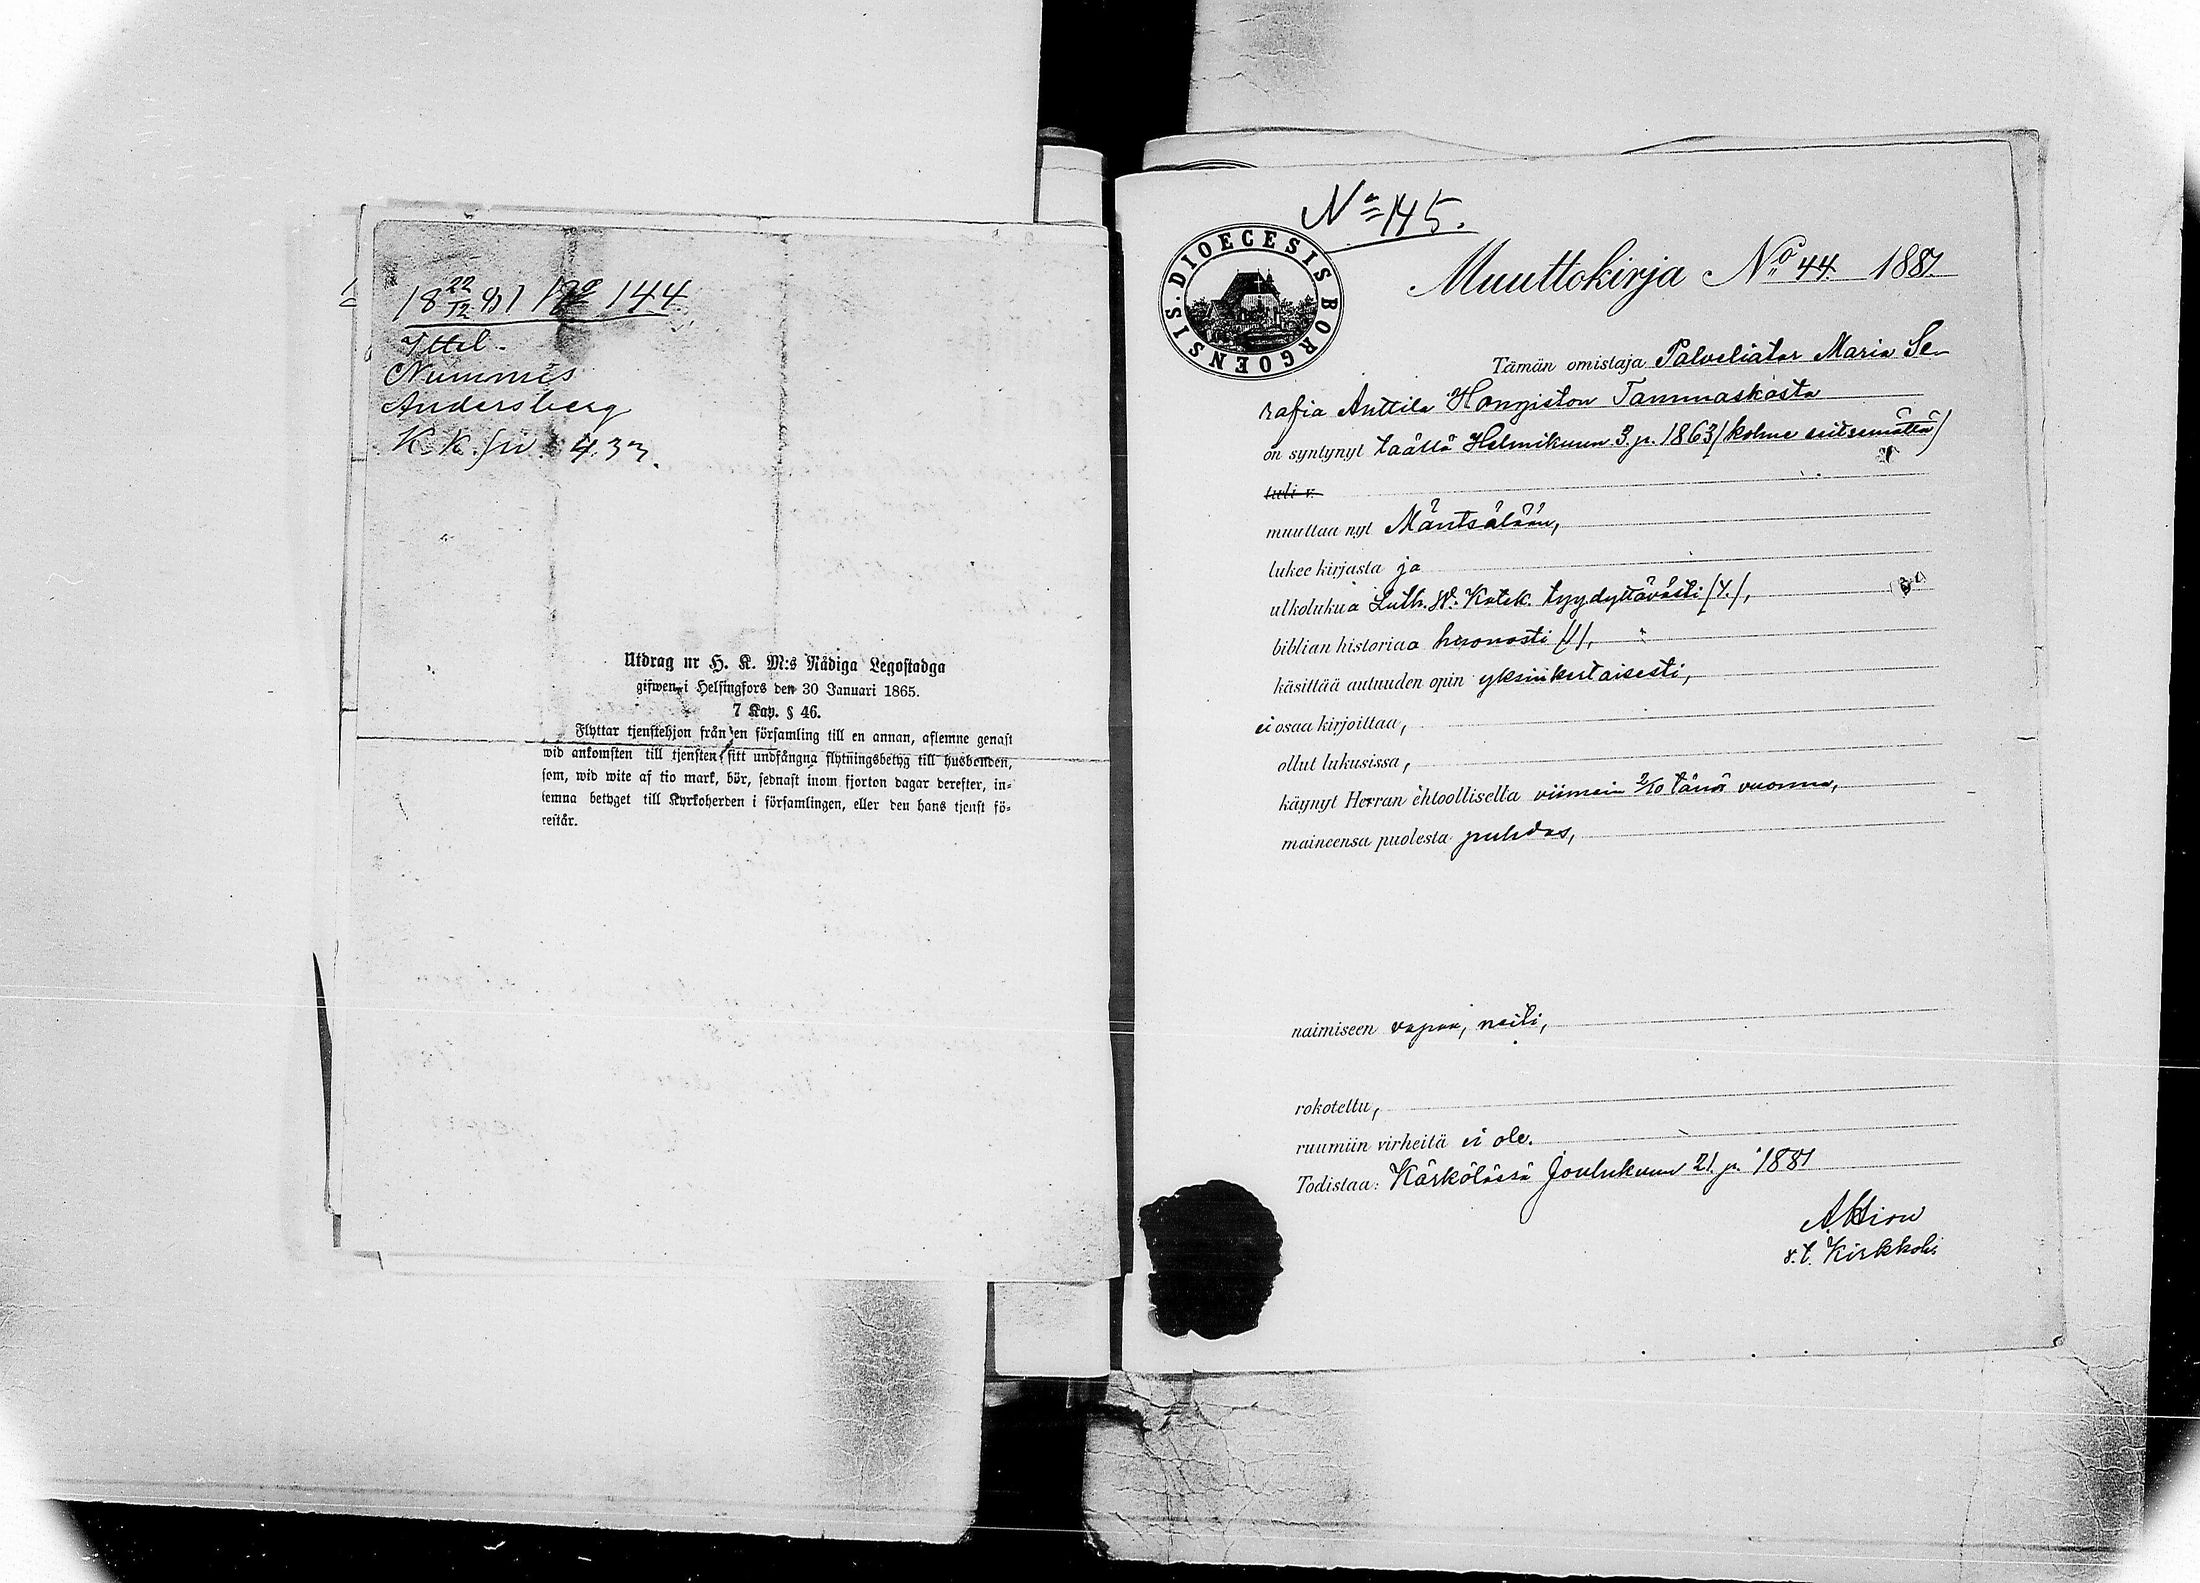 18 22/12 81 No 144
Ittel.
Nummis
Andersberg
K. k. siv. 433.
Utdrag ur H. K. M:s Nådiga Legostadga
gifwen i Helsingfors den 30 Januari 1865.
7 Kap. § 46.
Flyttar tjenstehjon från en församling till en annan, aflemne genast
wid ankomsten till tjensten sitt undfångna flyttningsbetyg till husbonden,
som, wid wite af tio mark, bör, sednast inom fjorton dagar derefter, in-
lemna betyget till Kyrkoherden i församlingen, eller den hans tjenst fö-
restår.
No 145.
DIOECESIS BORGOENSIS.
Muuttokirja No 44. 1881.
Tämän omistaja Palveliatar Maria Se-
rafia Anttila Hongiston Tammaskosta
on syntynyt täällä Helmikuun 3. p. 1863 (kolme seitsemättä)
tuli v.
muuttaa nyt Mäntsälään,
lukee kirjasta ja
ulkolukua Luth. W. Katek. tyydyttävästi (Y.),
biblian historiaa heikosti (1),
käsittää autuuden opin yksinkertaisesti,
ei osaa kirjoittaa,
ollut lukusissa,
käynyt Herran ehtoollisella viimein 2/10 tänä vuonna,
maineensa puolesta puhdas,
naimiseen vapaa, neiti,
rokotettu,
ruumiin virheitä ei ole.
Todistaa: Kärkölässä Joulukuun 21. p. 1881
v.t. Kirkkoh.